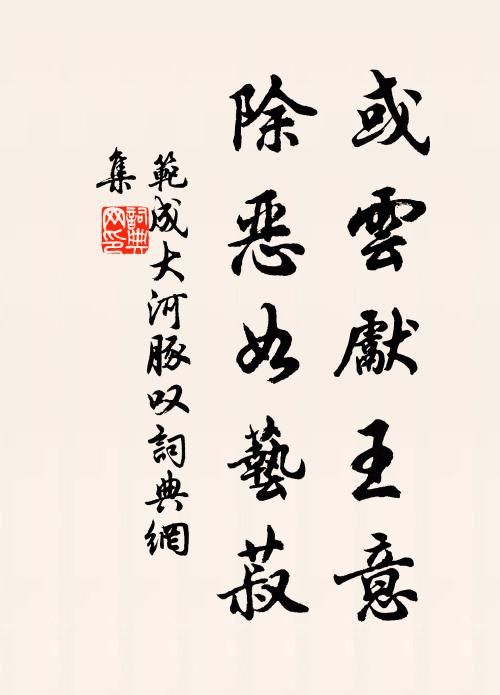 或雲獻王意
除惡如藝菽
範成大河豚叹詞典網
集
詞典网印